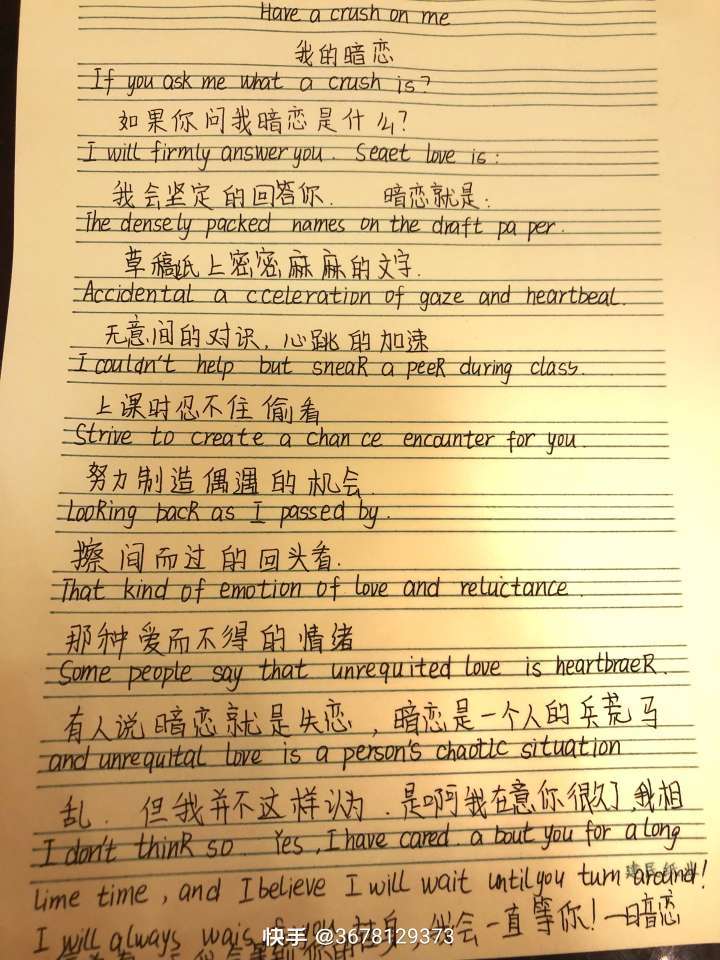 Have a crush on me
我的暗恋
If you ask me what a crush is?
如果你问我暗恋是什么?
I will firmly answer you. Seaet love is:
我会坚定的回答你. 暗恋就是:
The densely packed names on the draft pa per.
草稿纸上密密麻麻的文字.
Accidental a cceleration of gaze and heartbeal.
无意间的对识,心跳的加速
I couldn't help but sneaR a peeR during class.
上课时忍不住偷看
Strive to create a chan ce encounter for you.
努力制造偶遇的机会.
LooRing bacR as I passed by.
擦间而过的回头看.
That kind of emotion of love and reluctance.
那种爱而不得的情绪
Some people say that unrequited love is heartbraeR.
有人说暗恋就是失恋,暗恋是一个人的兵荒马
and unrequital love is a person's chaotic situation
乱. 但我并不这样认为. 是啊我在意你很久了,我相
I don't thinR so. Yes, I have cared. a bout you for a long
lime time, and I believe I will wait until you turn around!
I will always wais 我会一直等你!一暗恋
快手 @3678129373